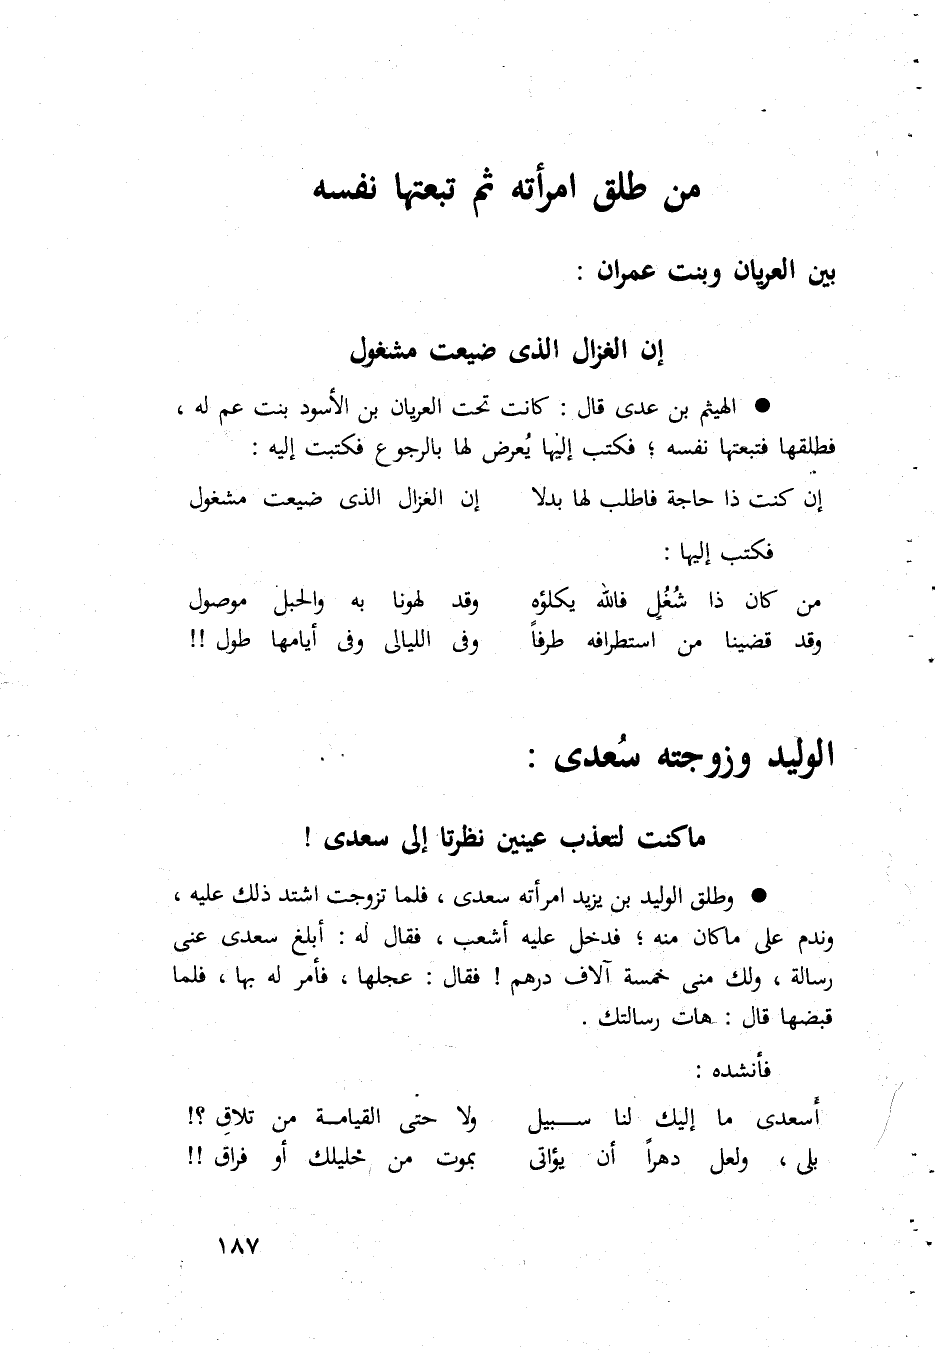 من طلق امرأته ثم تبعتها نفسه
بين العريان وبنت عمران :
إن الغزال الذى ضيعت مشغول
● الهيثم بن عدى قال : كانت تحت العريان بن الأسود بنت عم له ،
فطلقها فتبعتها نفسه ؛ فكتب إليها يُعرض لها بالرجوع فكتبت إليه :
إن كنت ذا حاجة فاطلب لها بدلا إن الغزال الذى ضيعت مشغول
فكتب إليها :
من كان ذا شُغُلٍ فالله يكلؤه وقد لهونا به والحبل موصول
وقد قضينا من استطرافه طرفاً وفى الليالى وفى أيامها طول !!
الوليد وزوجته سُعدى :
ماكنت لتعذب عينين نظرتا إلى سعدى !
● وطلق الوليد بن يزيد امرأته سعدى ، فلما تزوجت اشتد ذلك عليه ،
وندم على ماكان منه ؛ فدخل عليه أشعب ، فقال له : أبلغ سعدى عنى
رسالة ، ولك منى خمسة آلاف درهم ! فقال : عجلها ، فأمر له بها ، فلما
قبضها قال : هات رسالتك .
فأنشده :
أسعدى ما إليك لنا سبيل ولا حتى القيامة من تلاقِ ؟!
بلى ، ولعل دهراً أن يؤاتى بموت من خليلك أو فراق !!
١٨٧